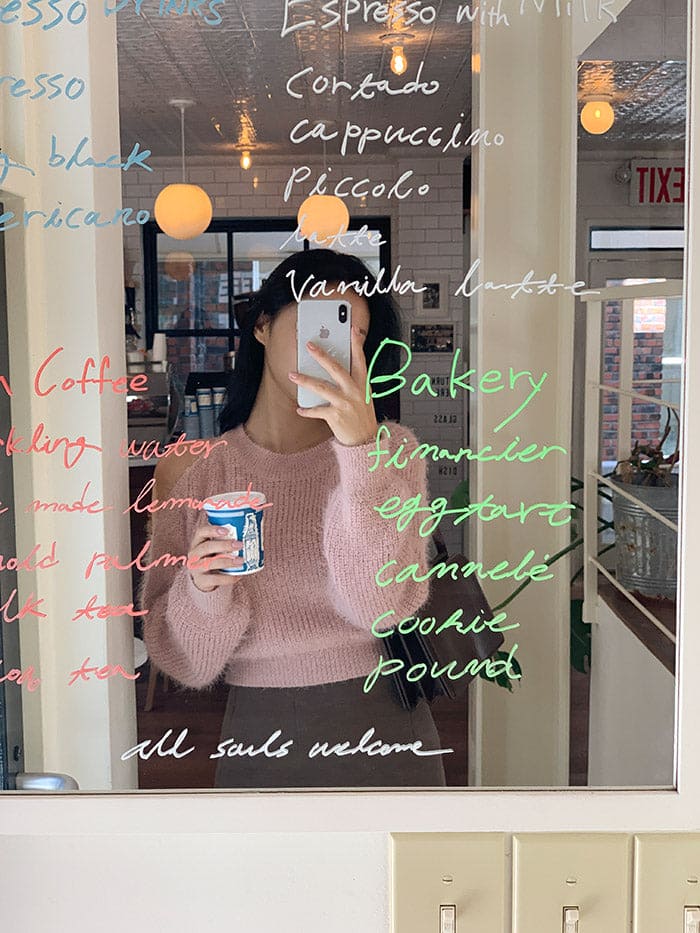 esso DRINKS
resso
black
ericano
Coffee
kling water
made lemonade
nold palmer
lk tea
tea
Espresso with Milk
Cortado
cappuccino
Piccolo
latte
Vanilla latte
Bakery
financier
eggtart
cannelé
cookie
pound
all souls welcome
EXIT
GLASS
DISH